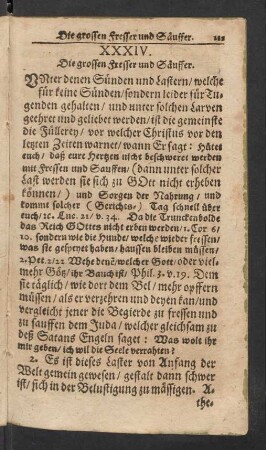 Die grossen Fresser und Säuffer. 111
XXXIV.
Die grossen Fresser und Säuffer.
UNter denen Sünden und Lastern / welche
für keine Sünden / sondern leider für Tu-
genden gehalten / und unter solchen Larven
geehret und geliebet werden / ist die gemeinste
die Füllerey / vor welcher Christus vor den
letzten Zeiten warnet / wann Er sagt: Hütet
euch / daß eure Hertzen nicht beschweret werden
mit Fressen und Sauffen / (dann unter solcher
Last werden sie sich zu GOtt nicht erheben
können /) und Sorgen der Nahrung / und
komme solcher (Gerichts-) Tag schnell über
euch / ꝛc. Luc. 21 / v. 34. Da die Trunckenbolde
das Reich GOttes nicht erben werden / 1. Cor. 6 /
10. sondern wie die Hunde / welche wieder fressen /
was sie gespeyet haben / haussen bleiben müssen /
2. Pet. 2 / 22 Wehe denẽ / welcher Gott / oder viel-
mehr Götz / ihr Bauch ist / Phil. 3. v. 19. Dem
sie täglich / wie dort dem Bel / mehr opffern
müssen / als er verzehren und deyen kan / und
vergleicht jener die Begierde zu fressen und
zu sauffen dem Juda / welcher gleichsam zu
deß Satans Engeln saget: Was wolt ihr
mir geben / ich wil die Seele verrahten?
2. Es ist dieses Laster von Anfang der
Welt gemein gewesen / gestalt dann schwer
ist / sich in der Belustigung zu mässigen. A-
the-